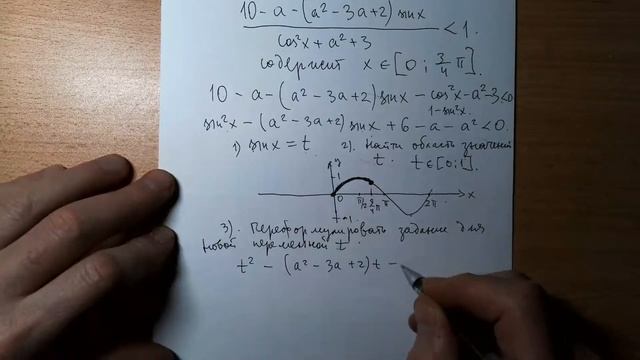 10 - a - (a² - 3a + 2) sin x
cos²x + a² + 3
< 1.
содержит x ∈ [0; 3/4 π].
10 - a - (a² - 3a + 2) sin x - cos²x - a² - 3 < 0
1 - sin²x.
sin²x - (a² - 3a + 2) sin x + 6 - a - a² < 0.
1) sin x = t 2). Найти область значений
t. t ∈ [0; 1].
y
1
0 π/2 3/4 π π 2π x
-1
3). Переформулировать задание для
новой переменной t.
t² - (a² - 3a + 2) t -